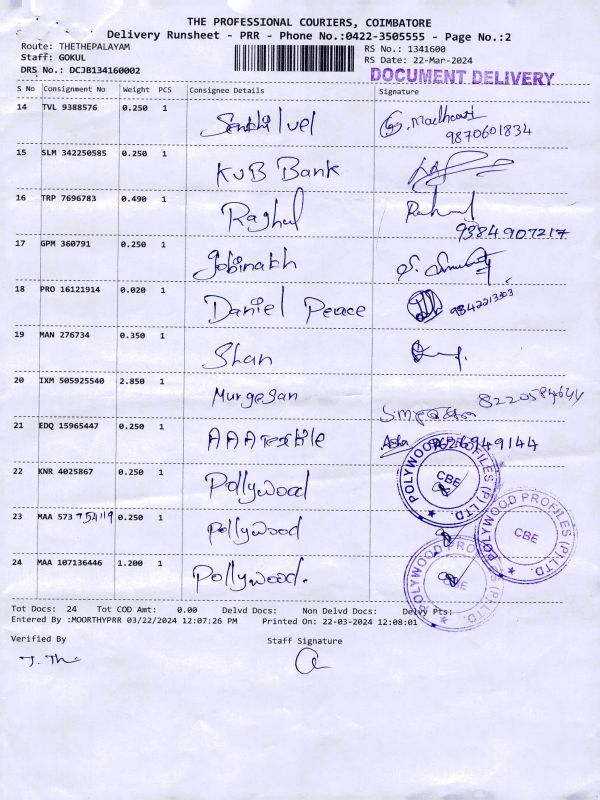 THE PROFESSIONAL COURIERS, COIMBATORE
Delivery Runsheet - PRR - Phone No.:0422-3505555 - Page No.:2
Route: THETHEPALAYAM RS No.: 1341600
Staff: GOKUL RS Date: 22-Mar-2024
DRS No.: DCJB134160002 DOCUMENT DELIVERY
S No Consignment No Weight PCS Consignee Details Signature
14 TVL 9388576 0.250 1 Senthil vel
9870601834
15 SLM 342250585 0.250 1 KVB Bank
16 TRP 7696783 0.490 1 Raghul Rahul
9384907217
17 GPM 360791 0.250 1 Gobinath
18 PRO 16121914 0.020 1 Daniel Peace 9342213303
19 MAN 276734 0.350 1 Shan
20 IXM 505925540 2.850 1 Murgesan
21 EDQ 15965447 0.250 1 AAA Textile Asha 9626949144
22 KNR 4025867 0.250 1 Pollywood
POLYWOOD PROFILES (P) LTD. CBE
23 MAA 573754119 0.250 1 pollywood
POLYWOOD PROFILES (P) LTD. CBE
24 MAA 107136446 1.200 1 Pollywood.
POLYWOOD PROFILES (P) LTD. CBE
Tot Docs: 24 Tot COD Amt: 0.00 Delvd Docs: Non Delvd Docs: Delvy Pts:
Entered By :MOORTHYPRR 03/22/2024 12:07:26 PM Printed On: 22-03-2024 12:08:01
Verified By Staff Signature